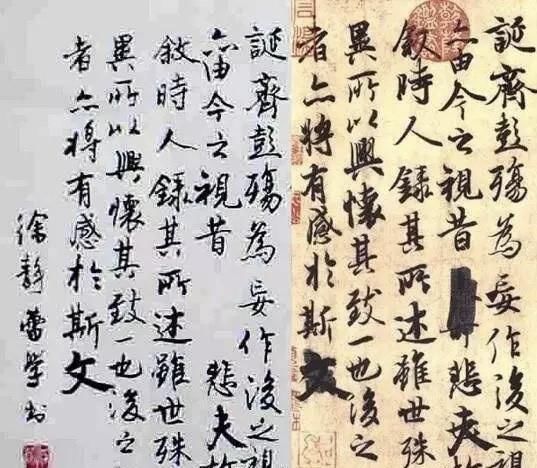 誕齊彭殤為妄作後之視
亦由今之視昔悲夫故
敘時人錄其所述雖世殊
異所以興懷其致一也後之
者亦將有感於斯文
誕齊彭殤為妄作後之視
亦由今之視昔悲夫故
敘時人錄其所述雖世殊
異所以興懷其致一也後之
者亦將有感於斯文
徐靜蕾學書